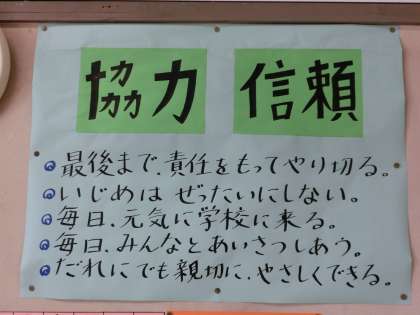 協力 信頼
◎最後まで、責任をもってやり切る。
◎いじめは ぜったいにしない。
◎毎日、元気に学校に来る。
◎毎日、みんなとあいさつしあう。
◎だれにでも親切に、やさしくできる。